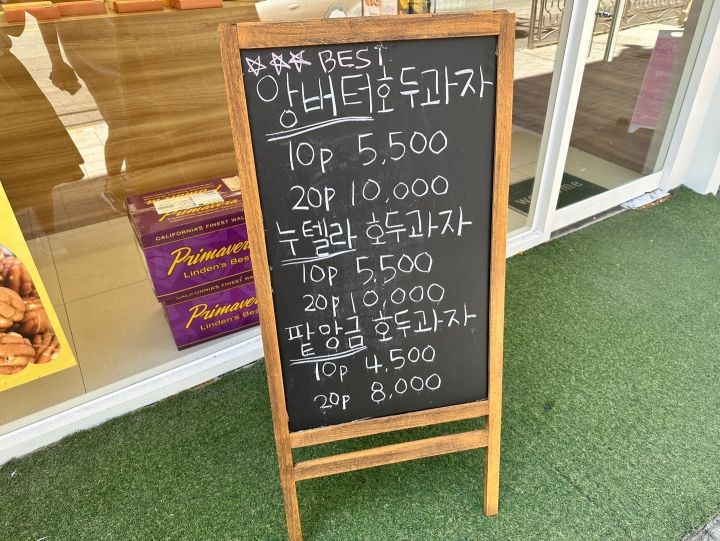 ☆☆☆ BEST
앙버터호두과자
10p 5,500
20p 10,000
누텔라 호두과자
10p 5,500
20p 10,000
팥앙금 호두과자
10p 4,500
20p 8,000
Primavera
CALIFORNIA'S FINEST
Primavera
Linden's Best
CALIFORNIA'S FINEST
Primavera
Linden's Best